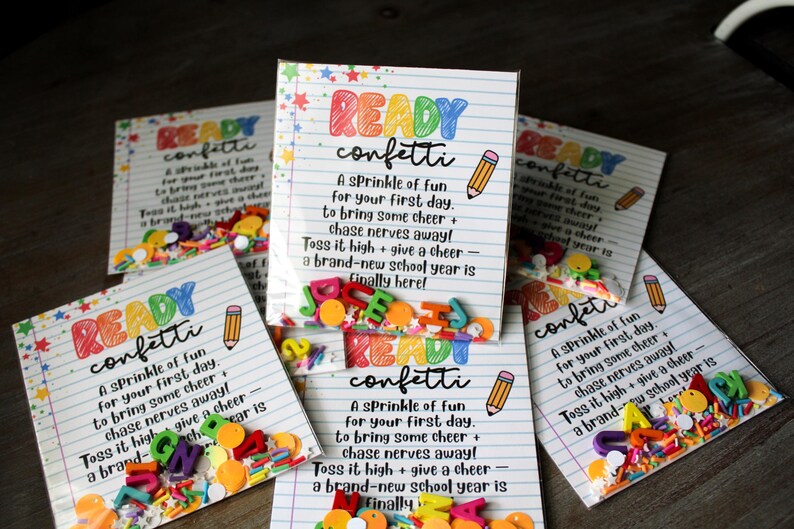 READY
confetti
A sprinkle of fun
for your first day.
to bring some cheer +
chase nerves away!
Toss it high + give a cheer —
a brand-new school year is
READY
confetti
A sprinkle of fun
for your first day.
to bring some cheer +
chase nerves away!
Toss it high + give a cheer —
a brand-new school year is
finally here!
READY
confetti
A sprinkle of fun
for your first day.
to bring some cheer +
READY
confetti
A sprinkle of fun
for your first day.
to bring some cheer +
chase nerves away!
Toss it high + give a cheer —
a brand-new school year is
READY
confetti
A sprinkle of fun
for your first day.
to bring some cheer +
chase nerves away!
Toss it high + give a cheer —
a brand-new school year is
finally
READY
confetti
A sprinkle of fun
for your first day.
to bring some cheer +
chase nerves away!
Toss it high + give a cheer —
a brand-new school year is